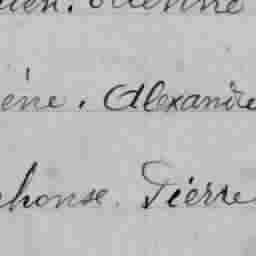 ien. Etienne
ène. Alexandre
phonse. Pierre